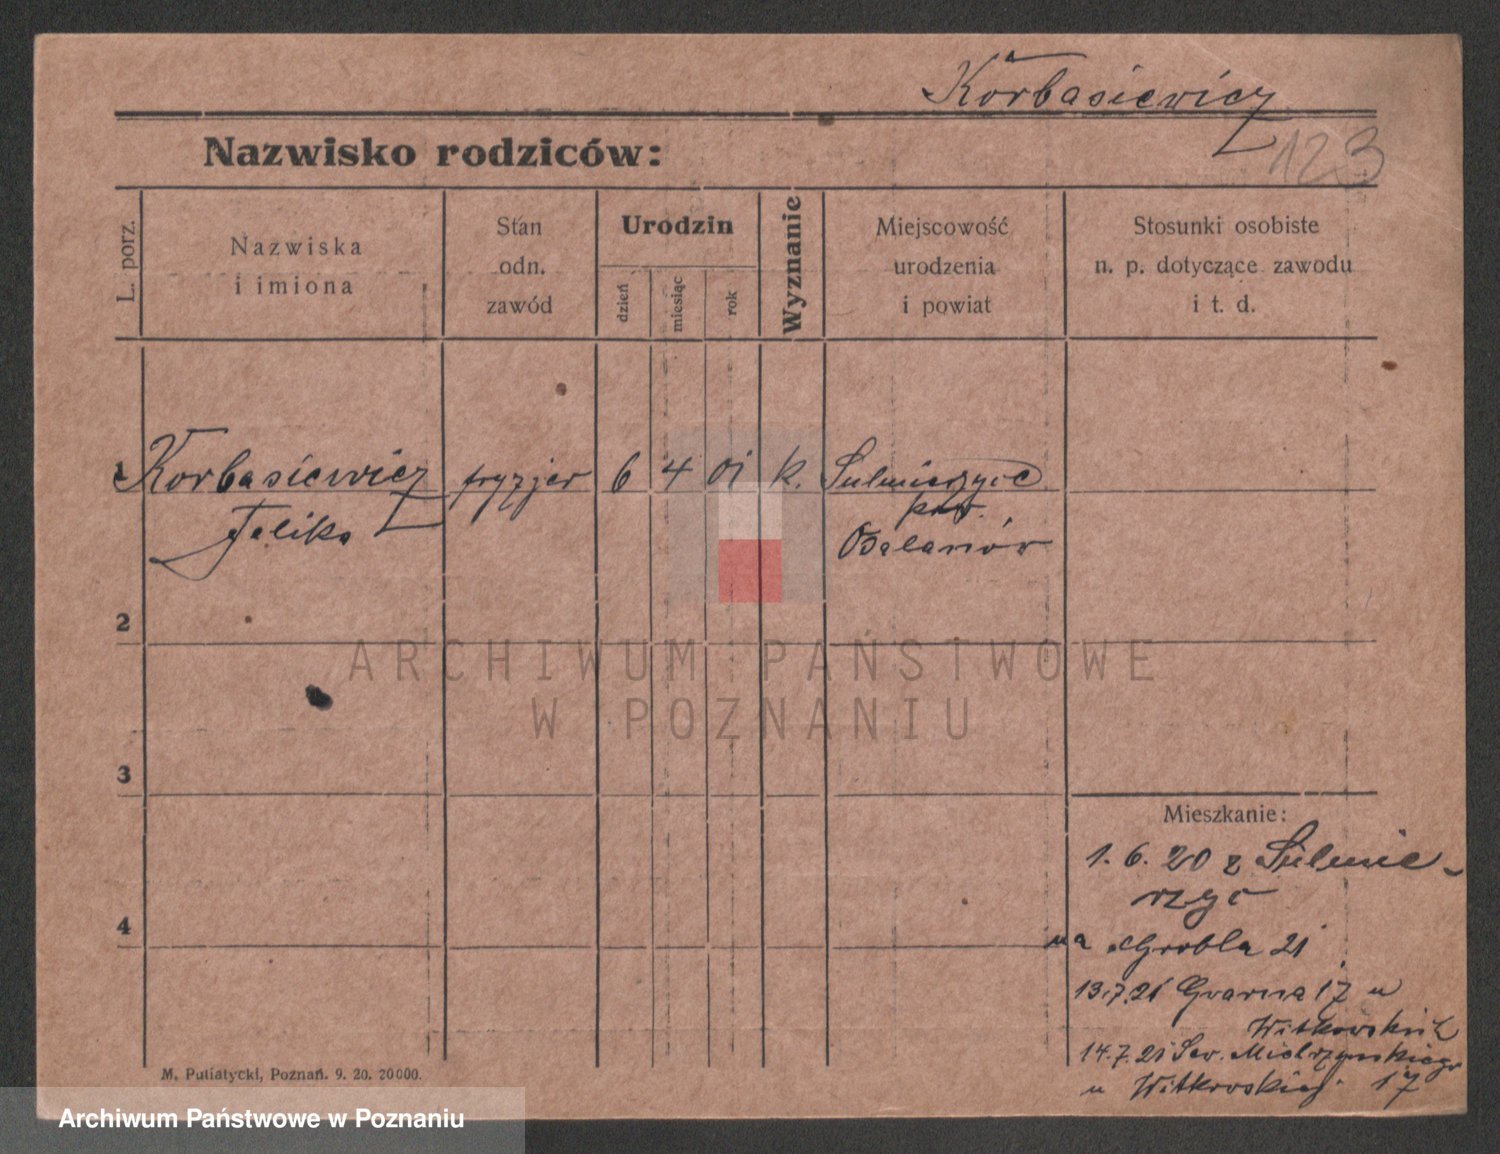 Korbasiewicz
123
Nazwisko rodziców:
L. porz.
Nazwiska
i imiona
Stan
odn.
zawód
Urodzin
dzień
miesiąc
rok
Wyznanie
Miejscowość
urodzenia
i powiat
Stosunki osobiste
n. p. dotyczące zawodu
i t. d.
1 Korbasiewicz fryzjer 6 4 01 k. Sulmierzyce
Feliks
pow.
Odalanów
2
3
4
Mieszkanie:
1. 6. 20 z Sulmie-
rzyc
na Grobla 21
13.7.21 Gwarna 17 u
Witkowskich
14.7.21 Sew. Mielrzyńskiego
u Witkowskiej 17
M. Putiatycki, Poznań. 9. 20. 20000.
ARCHIWUM PAŃSTWOWE
W POZNANIU
Archiwum Państwowe w Poznaniu